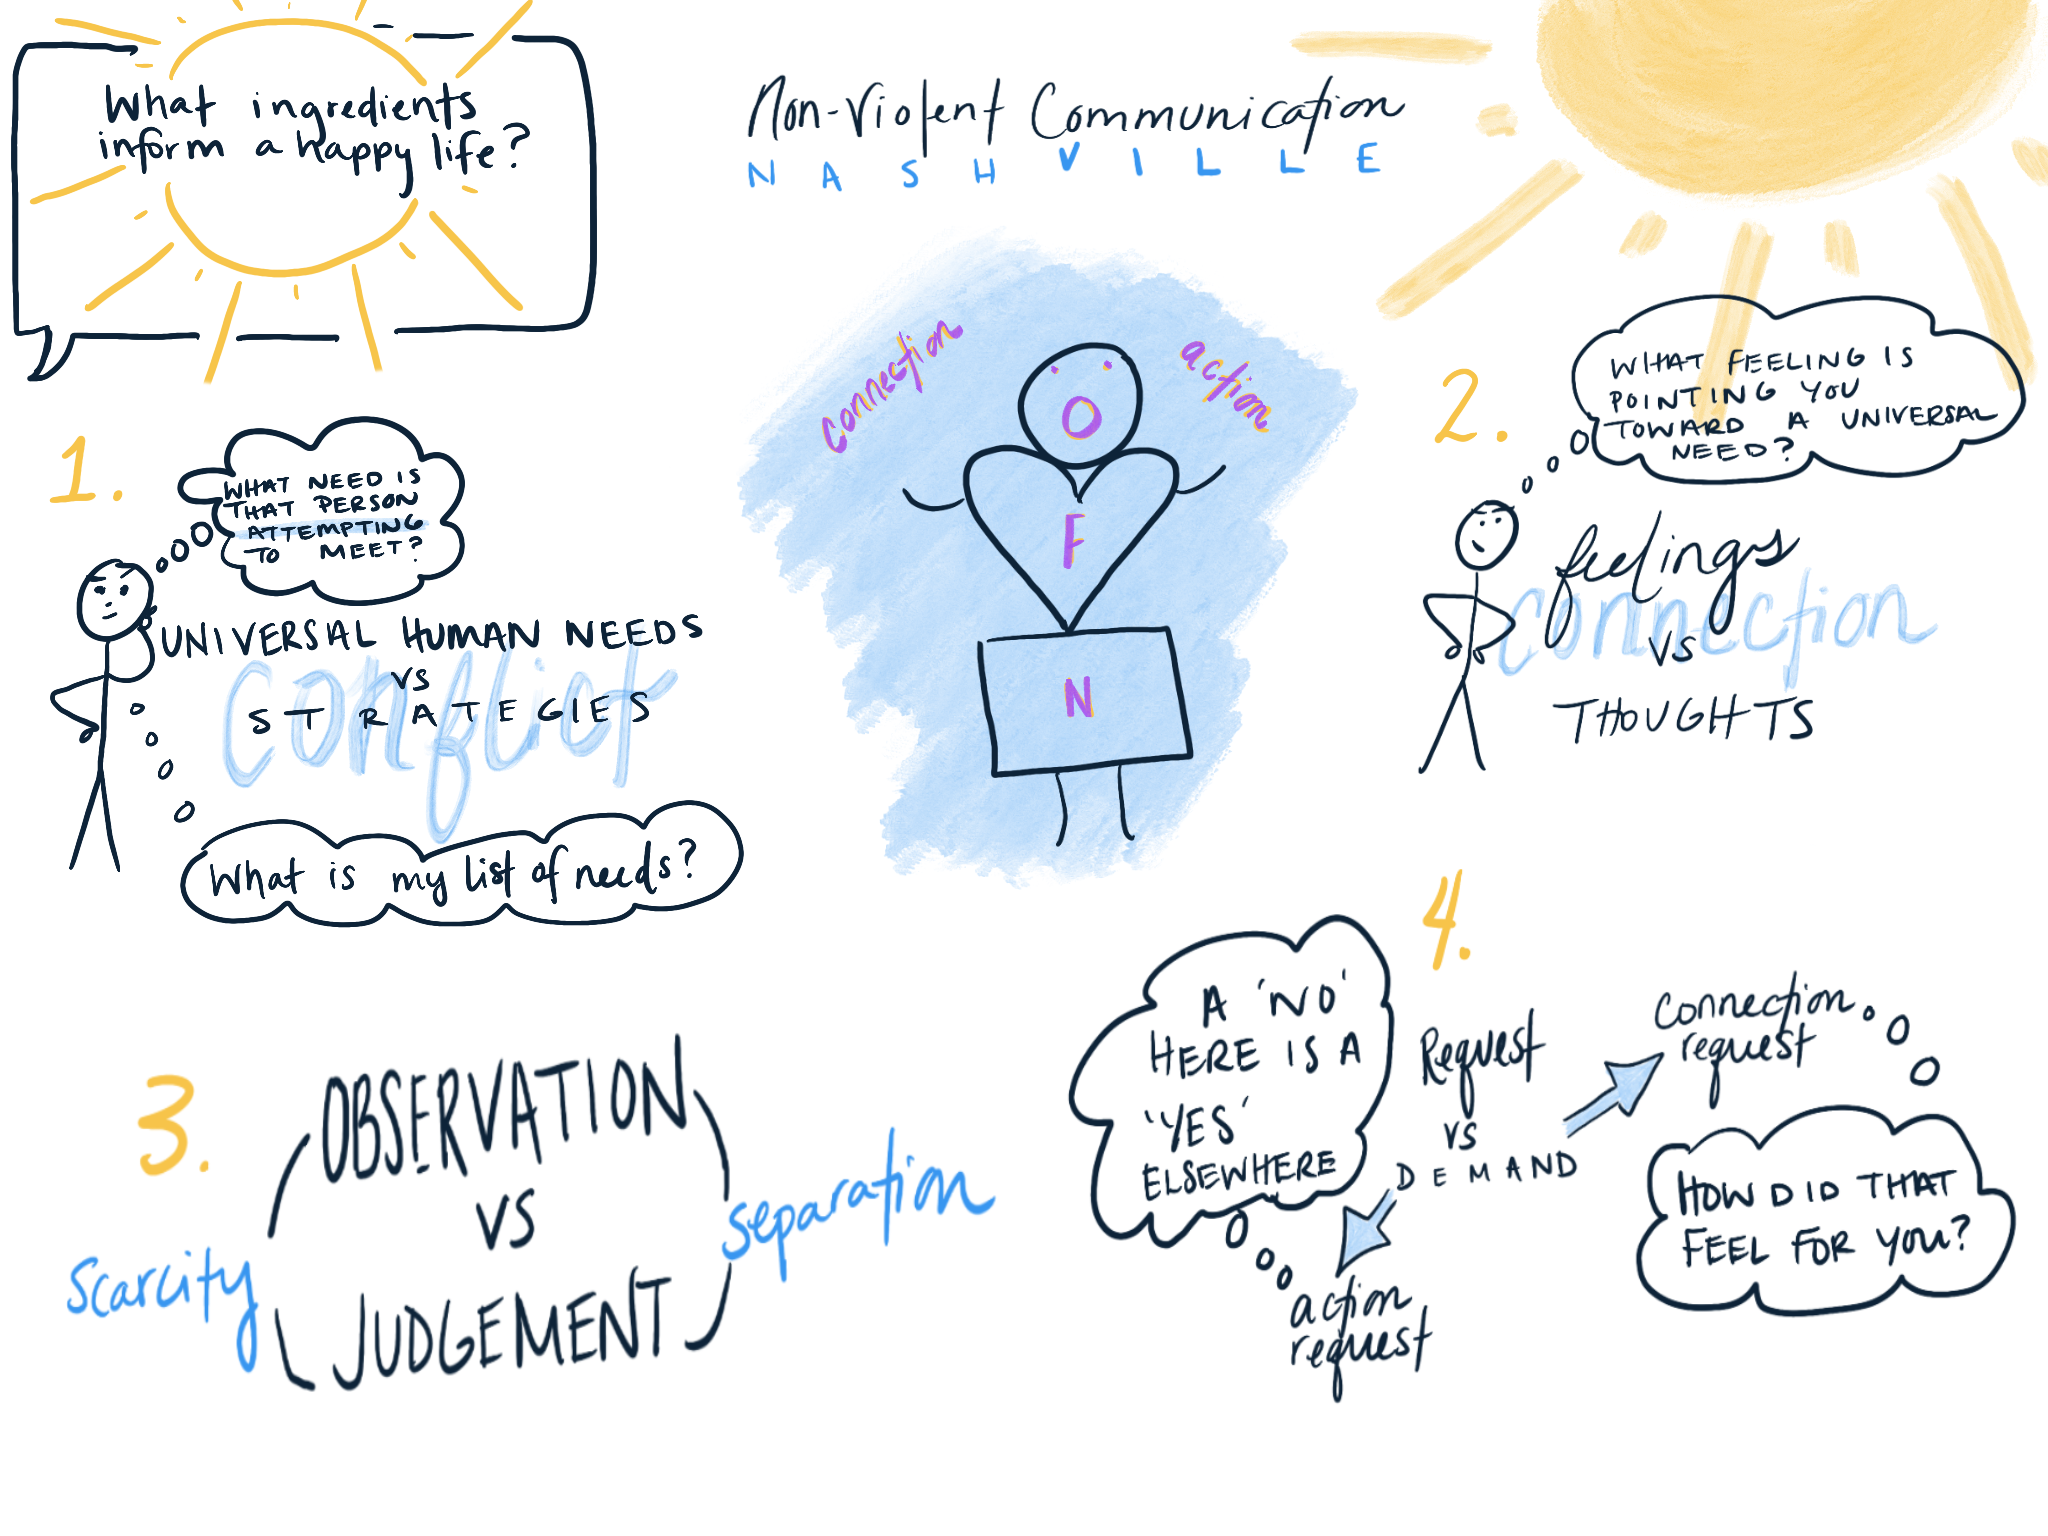 What ingredients
inform a happy life?
Non-Violent Communication
NASHVILLE
connection
action
O
F
N
1.
WHAT NEED IS
THAT PERSON
ATTEMPTING
TO MEET?
UNIVERSAL HUMAN NEEDS
VS
STRATEGIES
conflict
What is my list of needs?
2.
WHAT FEELING IS
POINTING YOU
TOWARD A UNIVERSAL
NEED?
feelings
connection
VS
THOUGHTS
3.
OBSERVATION
VS
JUDGEMENT
scarcity
separation
4.
A 'NO'
HERE IS A
'YES'
ELSEWHERE
Request
VS
DEMAND
action
request
connection
request
HOW DID THAT
FEEL FOR YOU?